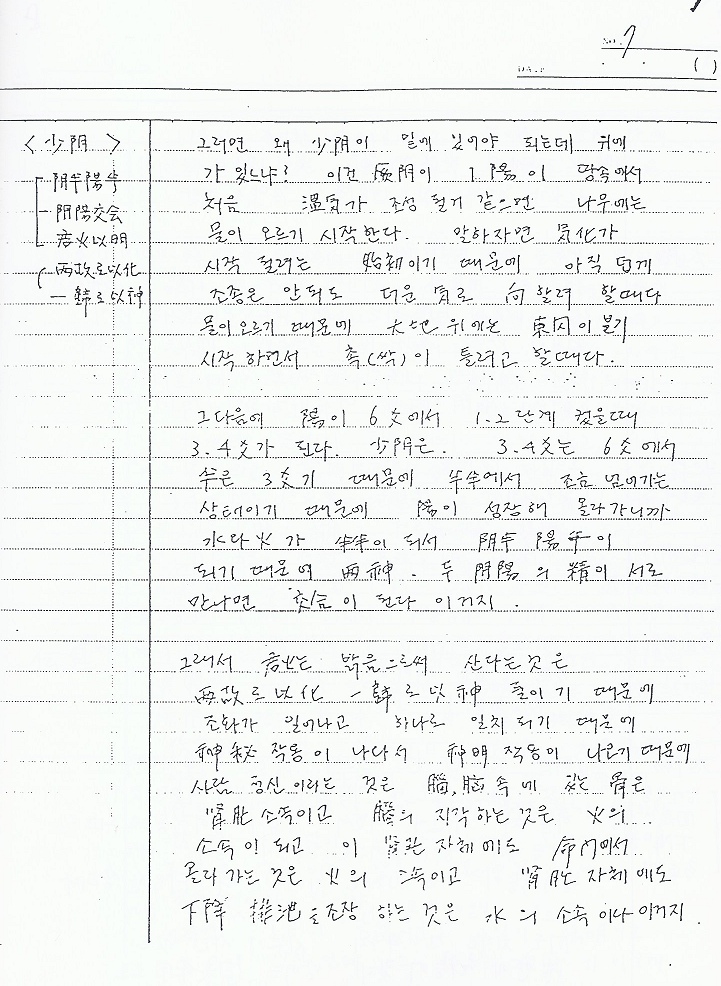 NO. 7
( )
< 少阴 >
阴半陽半
阴陽交会
君火以明
両故로以化
一 歸로以神
그러면 왜 少阴이 밑에 있어야 되는데 위에
가 있느냐? 이건 厥阴이 1 陽이 땅속에서
처음 温気가 조성 될거 같으면 나무에는
물이 오르기 시작한다. 말하자면 気化가
시작 될려는 始初이기 때문에 아직 덥게
조종은 안되도 더운 気로 向할려 할때다
물이오르기 때문에 大地 위에는 東风이 불기
시작 하면서 촉(싹)이 틀려고 할때다.
그다음에 陽이 6爻에서 1.2단계 컸을때
3.4爻가 된다. 少阴은. 3.4爻는 6爻에서
半은 3爻기 때문에 半半에서 조금 넘어가는
상태이기 때문에 陽이 성장해 올라가니까
水와 火가 半半이 되서 阴半 陽半이
되기 때문에 両神. 두 阴陽의 精이 서로
만나면 交合이 된다 이거지.
그래서 君火는 밝음으로써 산다는것은
両故로以化 一歸로以神 풀이기 때문에
조화가 일어나고 하나로 일치되기 때문에
神秘작용이 나다서 神明작용이 나오기 때문에
사람 정신이라는 것은 腦, 脳속에 骨은
腎 소속이고 腦의 지각하는것은 火의
소속이 되고 이 腎 자체에도 命门에서
올라가는것은 火의 소속이고 腎 자체에도
下降 조장 하는것은 水의 소속이다 이거지.